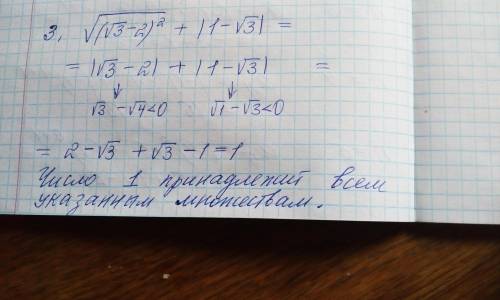 3. √(√3-2)² + |1-√3| =
= |√3-2| + |1-√3| =
↓ ↓
√3 -√4<0 √1 -√3<0
= 2-√3 +√3-1=1
Число 1 принадлежит всем
указанным множествам.